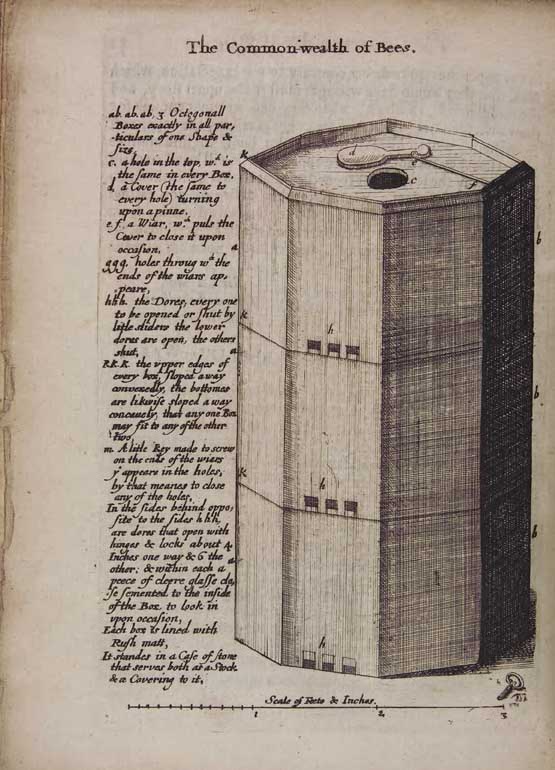 The Common-wealth of Bees.
ab. ab. ab. 3 Octogonall
Boxes exactly in all par,
ticulars of one Shape &
Size,
c. a hole in the top, wch is
the same in every Box,
d, a Cover (the same to
every hole) turning
upon a pinne,
e. f. a Wiar, wch puls the
Cover to close it upon
occasion,
ggg. holes throug wch the
ends of the wiars ap,
peare,
hhh. the Dores, every one
to be opened or shut by
litle sliders the lower
dores are open, the others
shut,
k.k.k. the upper edges of
every box, sloped away
convexedly, the bottomes
are likwise sloped a way
concavely, that any one Box
may fit to any of the other
two,
m. A litle Key made to screw
on the ends of the wiars
yt appears in the holes,
by that meanes to close
any of the holes,
In the sides behind oppo,
site to the sides hhh,
are dores that open with
hinges & locks about 4
Inches one way & 6 the
other; & within each a
peece of cleere glasse clo,
se semented to the inside
of the Box, to look in
upon occasion,
Each box is lined with
Rush matt,
It standes in a Case of stone
that serves both as a Stock
& a Covering to it,
k
d
e
c
f
a
b
k
h
a
b
k
h
a
b
h
m
Scale of Feete & Inches.
1 2 3